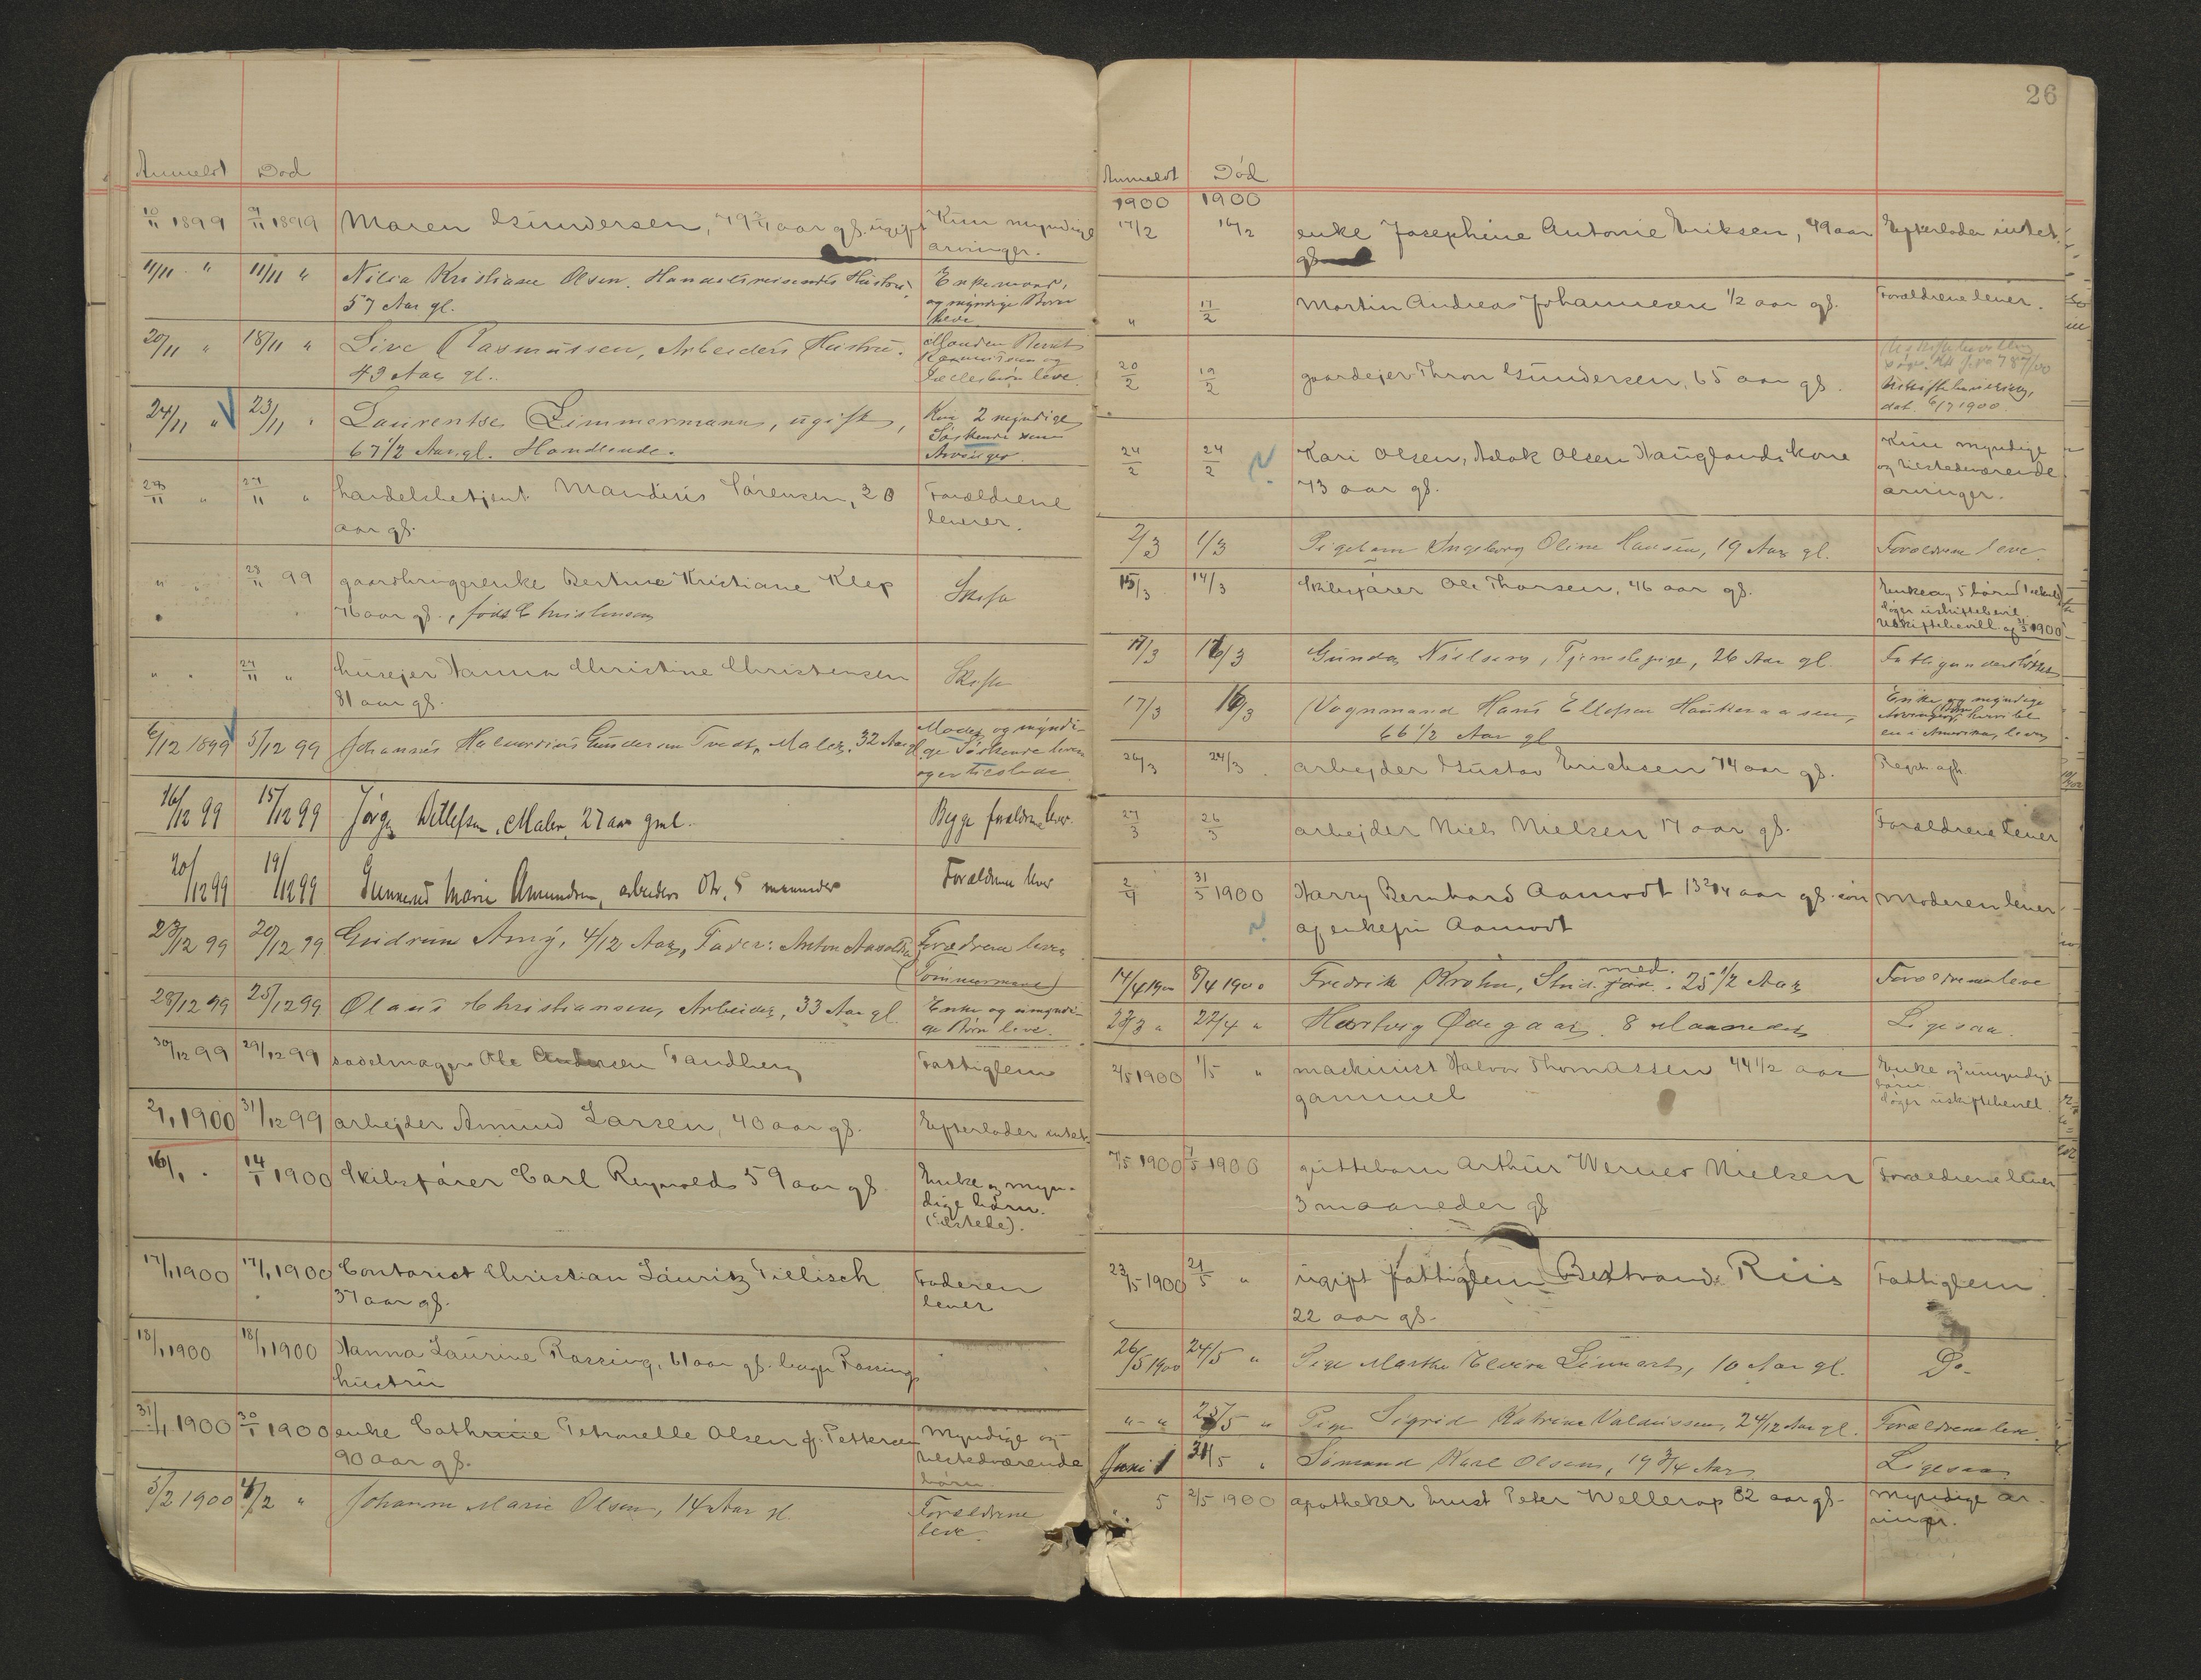 Anmeldt Død
10/11 1899 9/11 1899 Maren Gundersen, 79 3/4 aar gl. ugift Kun myndige
arvinger.
11/11 " 11/11 " Nilia Kristiane Olsen. Handelsreisendes Hustru, Enkemand,
57 Aar gl. og myndige Børn
leve
20/11 " 18/11 " Live Rasmussen, Arbeiders Hustru. Manden Bernt
43 Aar gl. Rasmussen og
Fællesbørn leve.
24/11 " 23/11 " Laurentse Zimmermann, ugift, Kun 2 myndige
67 1/2 Aar gl. Handlende. Søskende som
Arvinger.
27/11 " 27/11 " handelsbetjent Mandius Sørensen, 20 Forældrene
aar gl. lever.
" " 23/11 99 gaardbrugerenke Bertine Kristiane Klep Skifte
76 aar gl., født Christensen
" " 27/11 " husejer Hanna Christine Christensen Skifte
81 aar gl.
6/12 1899 5/12 99 Johannes Halvordius Gundersen Tvedt, Maler, 32 Aar gl. Moder og myndi-
ge Søskende lever
og er tilstede.
16/12 99 15/12 99 Jørgen Ditlefsen, Maler, 27 aar gml. Begge forældrene lever.
20/12 99 19/12 99 Gunnerud Marie Amundsen, arbeiders Dtr. 5 maaneder Forældrene lever
23/12 99 20/12 99 Gudrun Amy, 4/12 Aar, Fader: Anton Forældrene leve
(Tømmermand)
28/12 99 25/12 99 Olaus Christiansen, Arbeider, 33 Aar gl. Enke og umyndi-
ge Børn leve.
30/12 99 29/12 99 sadelmager Ole Andersen Sandberg Fattiglem
2/1 1900 31/12 99 arbejder Amund Larsen, 40 aar gl. Efterlader intet.
16/1 " 14/1 1900 Skibsfører Carl Reynolds 59 aar gl. Enke og myn-
dige børn.
(tilstede).
17/1 1900 17/1 1900 Contorist Christian Lauritz Tiellisch Faderen
37 aar gl. lever
18/1 1900 18/1 1900 Hanna Laurine Rassing, 61 aar gl. Rassings
hustru
31/1 1900 30/1 1900 enke Cathrine Petronelle Olsen f. Pettersen Myndige og
90 aar gl. tilstedværende
børn.
5/2 1900 4/2 " Johanne Marie Olsen, 14 Aar gl. Forældrene
leve.
26
Anmeldt Død
1900 1900
17/2 16/2 enke Josephine Antonie Eriksen, 49 aar Efterlader intet.
gl.
" 17/2 Martin Andreas Johannesen 1/2 aar gl. Forældrene lever.
20/2 19/2 gaardejer Thron Gundersen, 65 aar gl. Uskiftebevilling
Uskiftebevilling,
dat. 6/7 1900.
24/2 24/2 Kari Olsen, Aslak Olsen Hauglands kone Kun myndige
73 aar gl. og tilstedeværende
arvinger.
2/3 1/3 Pigebarn Ingeborg Oline Hansen, 19 Aar gl. Forældrene leve.
15/3 14/3 Skibsfører Ole Thorsen, 46 aar gl. Enke og 5 børn
søger uskiftebevil.
Uskiftebevill. af 31/3 1900
17/3 16/3 Gunda Nielsen, Tjenestepige, 26 Aar gl. Fattigunderstøttet
17/3 16/3 Vognmand Hans Ellefsen Haukenaasen, Enke og myndige
66 1/2 Aar gl Arvinger,
en i Amerika, lever
26/3 24/3 arbejder Gustav Ericksen 74 aar gl.
27/3 26/3 arbejder Niels Nielsen 17 aar gl. Forældrene lever
2/4 31/5 1900 Harry Bernhard Aamodt 13 2/4 aar gl. søn Moderen lever
af enkefru Aamodt
14/4 1900 8/4 1900 Fredrik Krohn, Stud. med. 25 1/2 Aar Forældrene leve
23/3 " 22/4 " Hartvig Ødegaard. 8 Maaneder Ligesaa.
2/5 1900 1/5 " maskinist Halvor Thomassen 44 1/2 aar Enke og umyndige
gammel børn
søger uskiftebevill.
7/5 1900 7/5 1900 guttebarn Arthur Werner Nielsen Forældrene lever
3 maaneder gl
23/5 1900 21/5 " ugift fattiglem Bertrand Riis Fattiglem
22 aar gl.
26/5 1900 24/5 " Pige Marthe Elvira Linnart, 10 Aar gl. Do.
" - " 25/5 " Pige Sigrid Katrine Valdussen, 24/12 Aar gl. Forældrene leve.
Juni 1 31/5 " Sømand Karl Olsen, 19 3/4 Aar Ligesaa
" 5 2/5 1900 apotheker Ernst Peter Wellerop 82 aar gl. Myndige ar-
vinger.